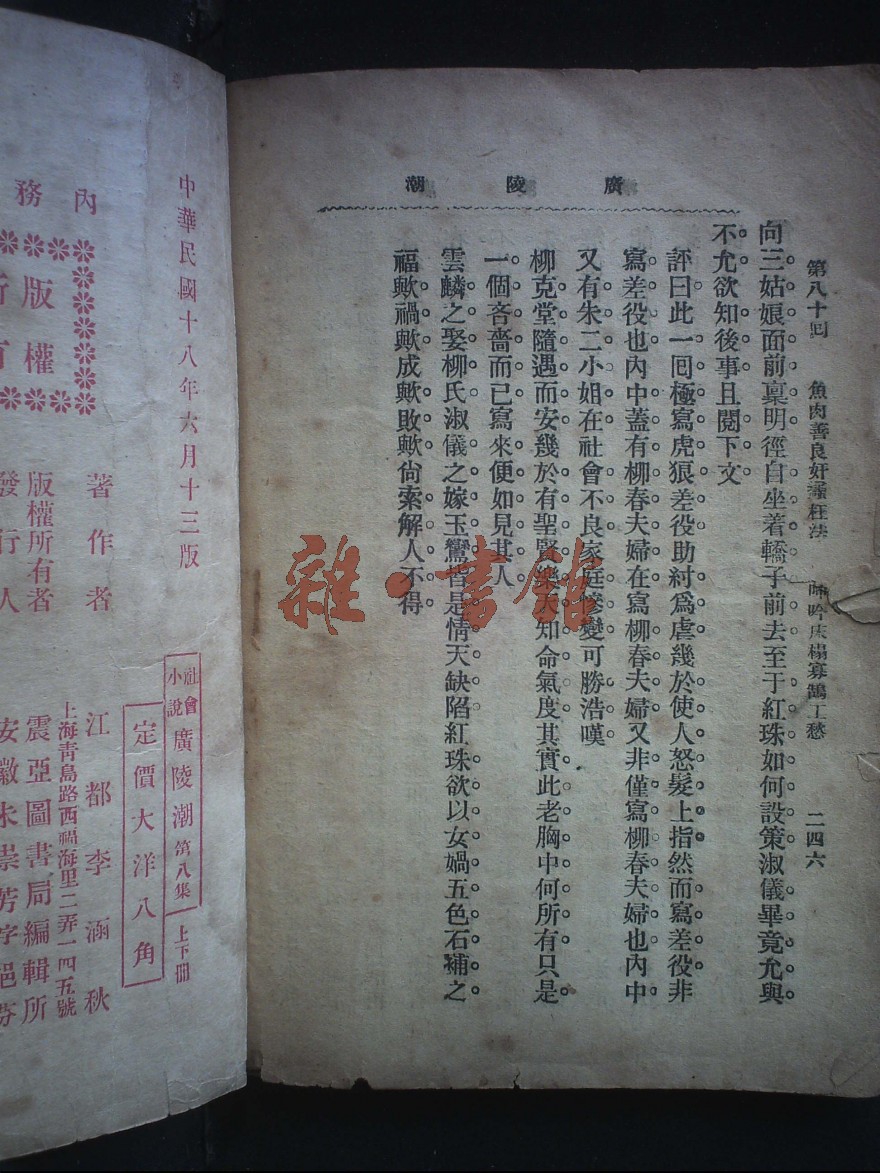 廣陵潮
第八十回 魚肉善良奸蠹枉法 呻吟床榻寡鵠工愁 二四六
向三姑娘面前稟明徑自坐着轎子前去至于紅珠如何設策淑儀畢竟允與
不允欲知後事且閱下文
評曰此一回極寫虎狼差役助紂爲虐幾於使人怒髮上指然而寫差役非
寫差役也內中蓋有柳春夫婦在寫柳春夫婦又非僅寫柳春夫婦也內中
又有朱二小姐在社會不良家庭慘變可勝浩嘆
柳克堂隨遇而安幾於有聖賢樂天知命氣度其實此老胸中何所有只是
一個吝嗇而已寫來便如見其人
雲麟之娶柳氏淑儀之嫁玉鸞皆是情天缺陷紅珠欲以女媧五色石補之
福歟禍歟成歟敗歟尙索解人不得
雜·書館
中華民國十八年六月十三版
社會小說廣陵潮第八集 上下冊
定價大洋八角
內務
版權
著作者 江都李涵秋
版權所有者 上海靑島路西福海里二弄一四五號
震亞圖書局編輯所
發行人 安徽朱崇芳字挹芬